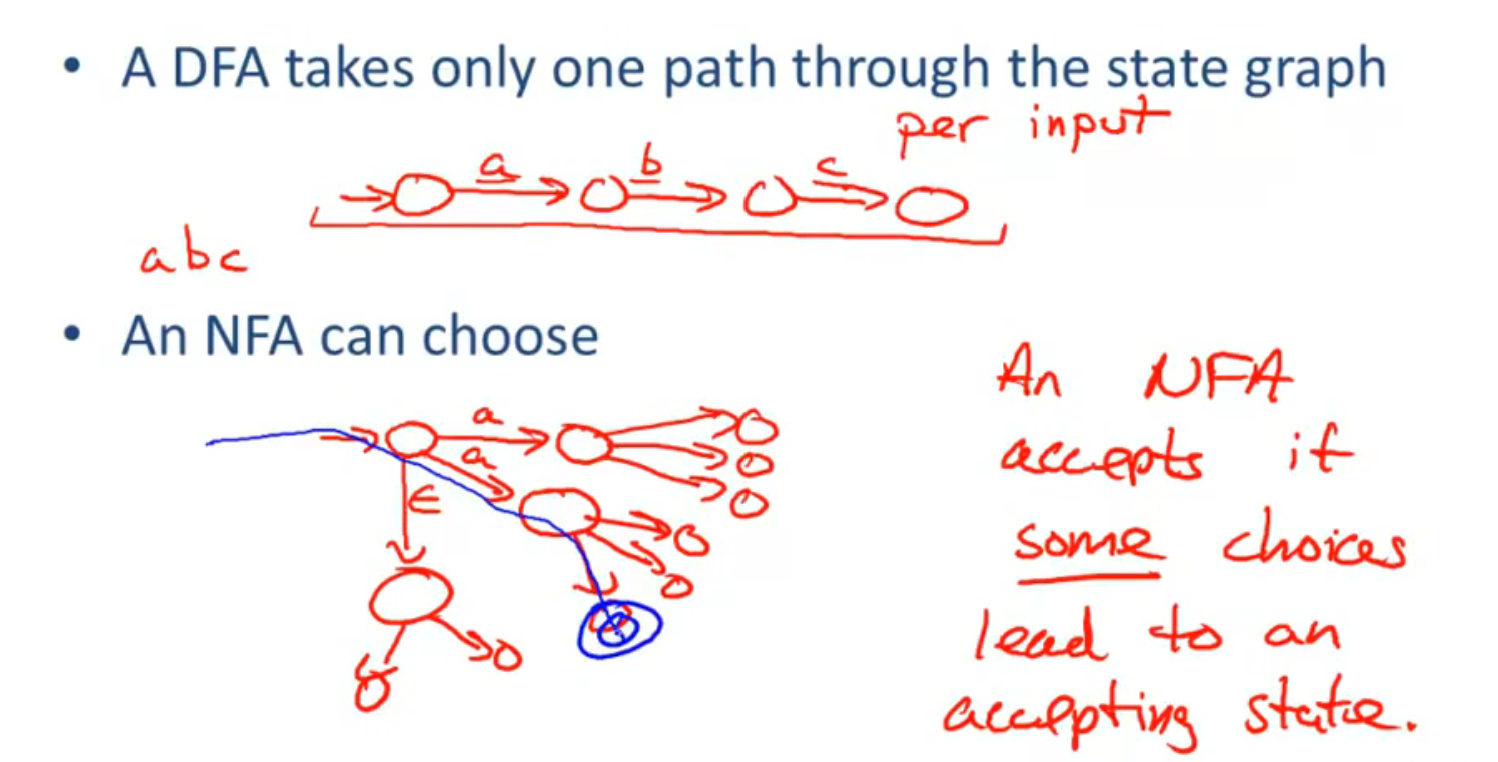 • A DFA takes only one path through the state graph
per input
a b c
abc
• An NFA can choose
a
a
ε
An NFA
accepts if
some choices
lead to an
accepting state.